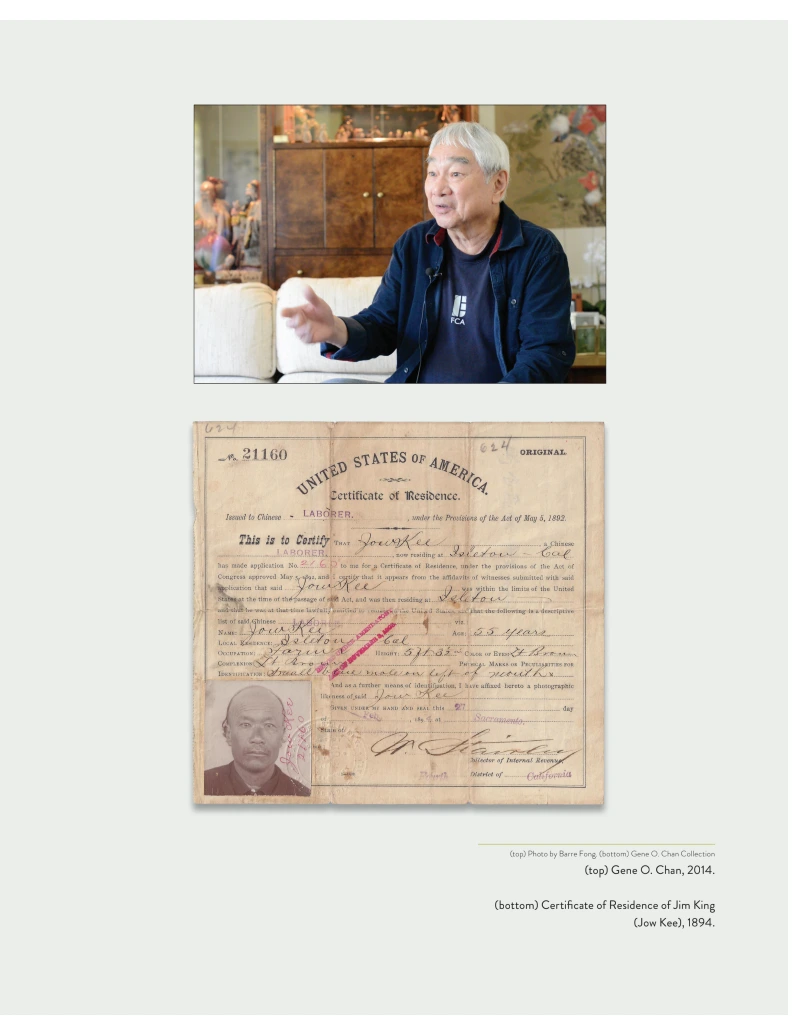 FCA
624
No. 21160
624
ORIGINAL.
UNITED STATES OF AMERICA.
Certificate of Residence.
Issued to Chinese - LABORER. , under the Provisions of the Act of May 5, 1892.
This is to Certify THAT Jow Kee a Chinese
LABORER. , now residing at Isleton - Cal
has made application No. to me for a Certificate of Residence, under the provisions of the Act of
Congress approved May 5, 1892, and I certify that it appears from the affidavits of witnesses submitted with said
application that said Jow Kee was within the limits of the United
States at the time of the passage of said Act, and was then residing at Isleton
and that he was at that time lawfully entitled to remain in the United States, and that the following is a descriptive
list of said Chinese LABORER viz.:
NAME: Jow Kee AGE: 55 years
LOCAL RESIDENCE: Isleton Cal
OCCUPATION: Farmer HEIGHT: 5ft COLOR OF EYES: Lt Brown
COMPLEXION: Lt Brown PHYSICAL MARKS OR PECULIARITIES FOR
IDENTIFICATION: Small mole on left of mouth
And as a further means of identification, I have affixed hereto a photographic
likeness of said Jow Kee
GIVEN UNDER MY HAND AND SEAL this day
of , 189 at Sacramento,
State of
Jow Kee
21160
Collector of Internal Revenue,
District of California
(top) Photo by Barre Fong, (bottom) Gene O. Chan Collection
(top) Gene O. Chan, 2014.
(bottom) Certificate of Residence of Jim King
(Jow Kee), 1894.